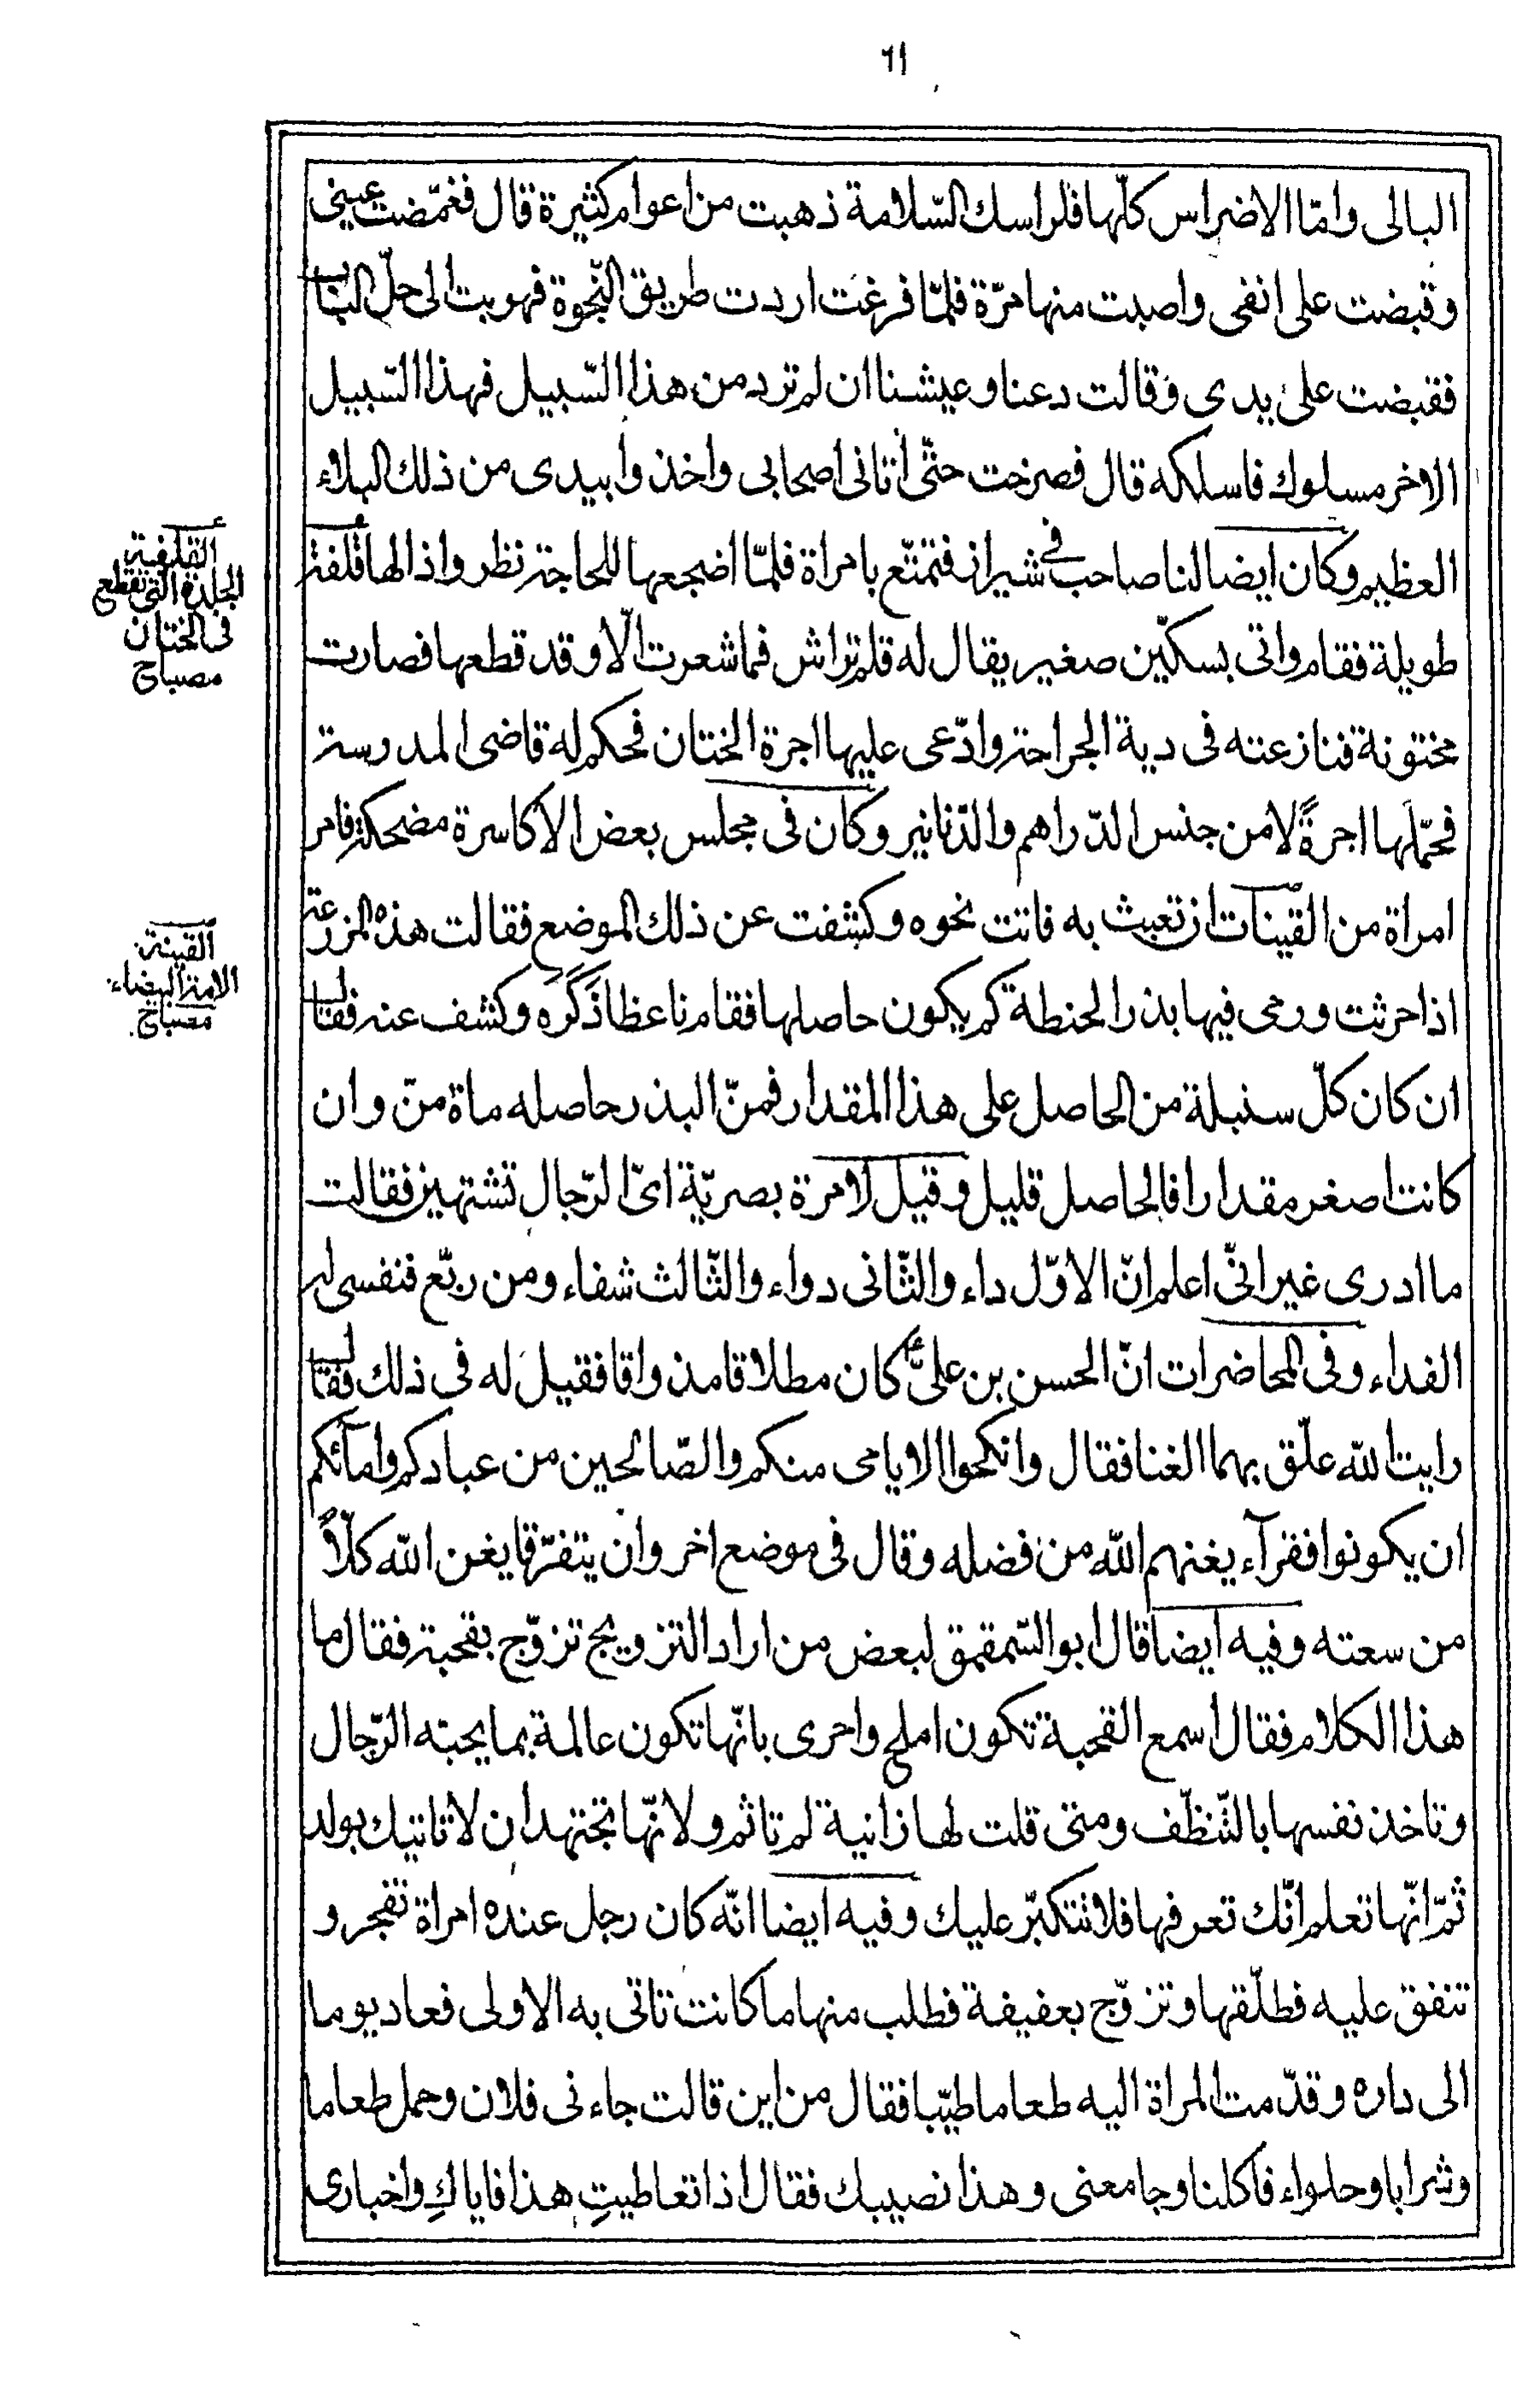 ٦١
البالى وامّا الاضراس كلّها فلراسك السّلامة ذهبت من اعوام كثيرة قال فغمّضت عينى
وقبضت على انفى واصبت منها مرّة فلمّا فرغت اردت طريق النّجوة فهويت الى حلّ الباب
فقبضت على يدى وقالت دعنا وعيشنا ان لم ترد من هذا السّبيل فهذا السّبيل
الاخر مسلوك فاسلكه قال فصرخت حتّى أتانى اصحابى واخذوا بيدى من ذلك البلاء
العظيم وكان ايضا لنا صاحب فى شيراز فتمتّع بامراة فلمّا اضجعها للحاجة نظر واذا لها قُلفة
طويلة فقام واتى بسكّين صغير يقال له قلم تراش فما شعرت الّا وقد قطعها فصارت
مختونة فنازعته فى دية الجراحة وادّعى عليها اجرة الختان فحكم له قاضى المدرسة
فحمّلها اجرةً لا من جنس الدّراهم والدّنانير وكان فى مجلس بعض الاكاسرة مضحكة فامر
امراة من القينات ان تعبث به فاتت نحوه وكشفت عن ذلك الموضع فقالت هذه المزرعة
اذا حرثت ورمى فيها بذر الحنطة كم يكون حاصلها فقام ناعظا ذَكَرَه وكشف عنه فقال
ان كان كلّ سنبلة من الحاصل على هذا المقدار فمنّ البذر حاصله ماة منّ وان
كانت اصغر مقدارا فالحاصل قليل وقيل لامرة بصريّة اىّ الرّجال تشتهين فقالت
ما ادرى غير انّى اعلم انّ الاوّل داء والثّانى دواء والثّالث شفاء ومن ربّع فنفسى له
الفداء وفى المحاضرات انّ الحسن بن علىّ ع كان مطلاقا مذواقا فقيل له فى ذلك فقال
رايت الله علّق بهما الغنا فقال وانكحوا الايامى منكم والصّالحين من عبادكم وامآئكم
ان يكونوا فقرآء يغنهم الله من فضله وقال فى موضع اخر وان يتفرّقا يغن الله كلّاً
من سعته وفيه ايضا قال ابو السّمقمق لبعض من اراد التزويج تزوّج بقحبة فقال ما
هذا الكلام فقال اسمع القحبة تكون املح واحرى بانّها تكون عالمة بما يحبّه الرّجال
وتاخذ نفسها بالتّنظّف ومتى قلت لها زانية لم تاثم ولانّها تجتهد ان لا تاتيك بولد
ثمّ انّها تعلم انّك تعرفها فلا تتكبّر عليك وفيه ايضا انّه كان رجل عنده امراة تفجر و
تنفق عليه فطلّقها وتزوّج بعفيفة فطلب منها ما كانت تاتى به الاولى فعاد يوما
الى داره وقدّمت المراة اليه طعاما طيّبا فقال من اين قالت جاءنى فلان وحمل طعاما
وشرابا وحلواء فاكلنا وجامعنى وهذا نصيبك فقال اذا تعاطيتِ هذا فاياكِ واخبارى
القلفة
الجلدة التى تقطع
فى الختان
مصباح
القينة
الامة البيضاء
مصباح